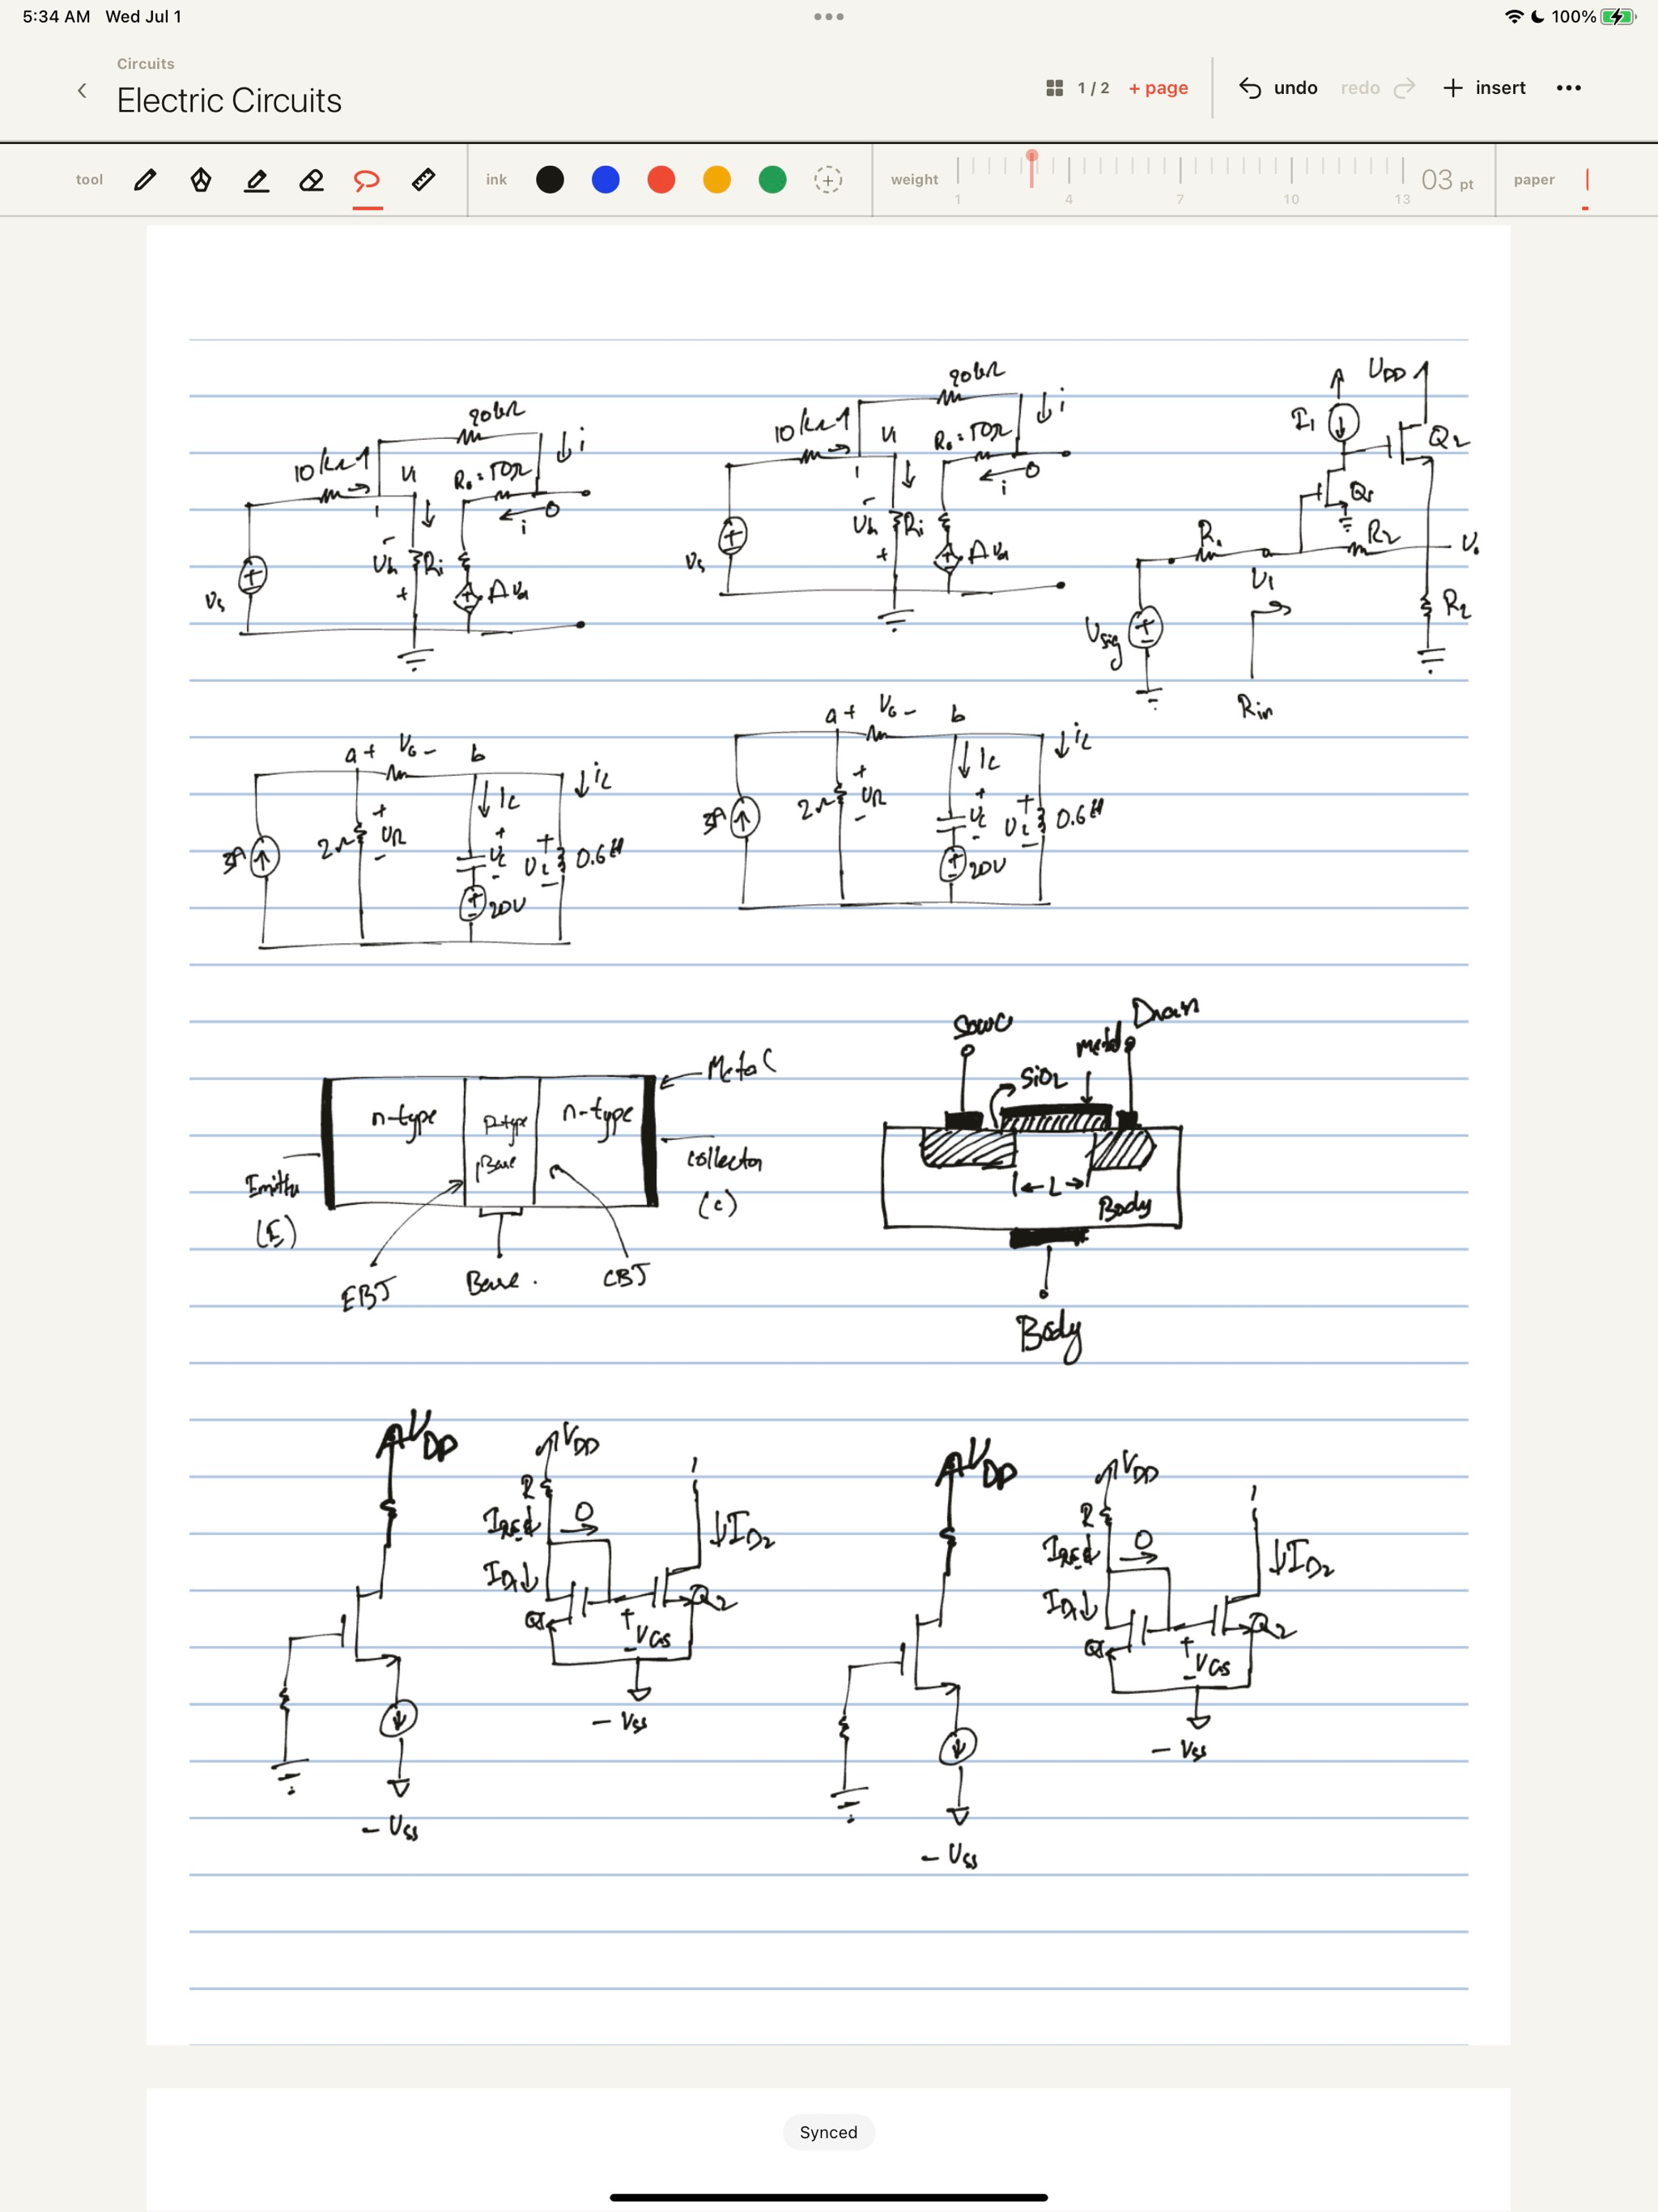 5:34 AM Wed Jul 1
100%
Circuits
Electric Circuits
1 / 2
+ page
undo
redo
+ insert
tool
ink
weight
1 4 7 10 13
03 pt
paper
90kΩ
10kΩ
i
R₀ = 50Ω
Ri
i
0
Vs
90kΩ
10kΩ
i
R₀ = 50Ω
Ri
i
0
Vs
VDD
I₁
Q₂
Q₁
R₂
V₁
Vsig
Rin
a + V₆ - b
iL
Ic
3A
2Ω
+ VR -
+ Vc -
+ VL -
0.6H
20V
a + V₆ - b
iL
Ic
3A
2Ω
+ VR -
+ Vc -
+ VL -
0.6H
20V
n-type
P-type
Base
n-type
Metal
collector
(C)
(E)
EBJ
Base.
CBJ
Drain
metal
SiO₂
L
Body
Body
VDD
- VSS
VDD
R
IREF
0
ID1
ID2
Q1
Q2
+ VGS -
- VSS
VDD
- VSS
VDD
R
IREF
0
ID1
ID2
Q1
Q2
+ VGS -
- VSS
Synced